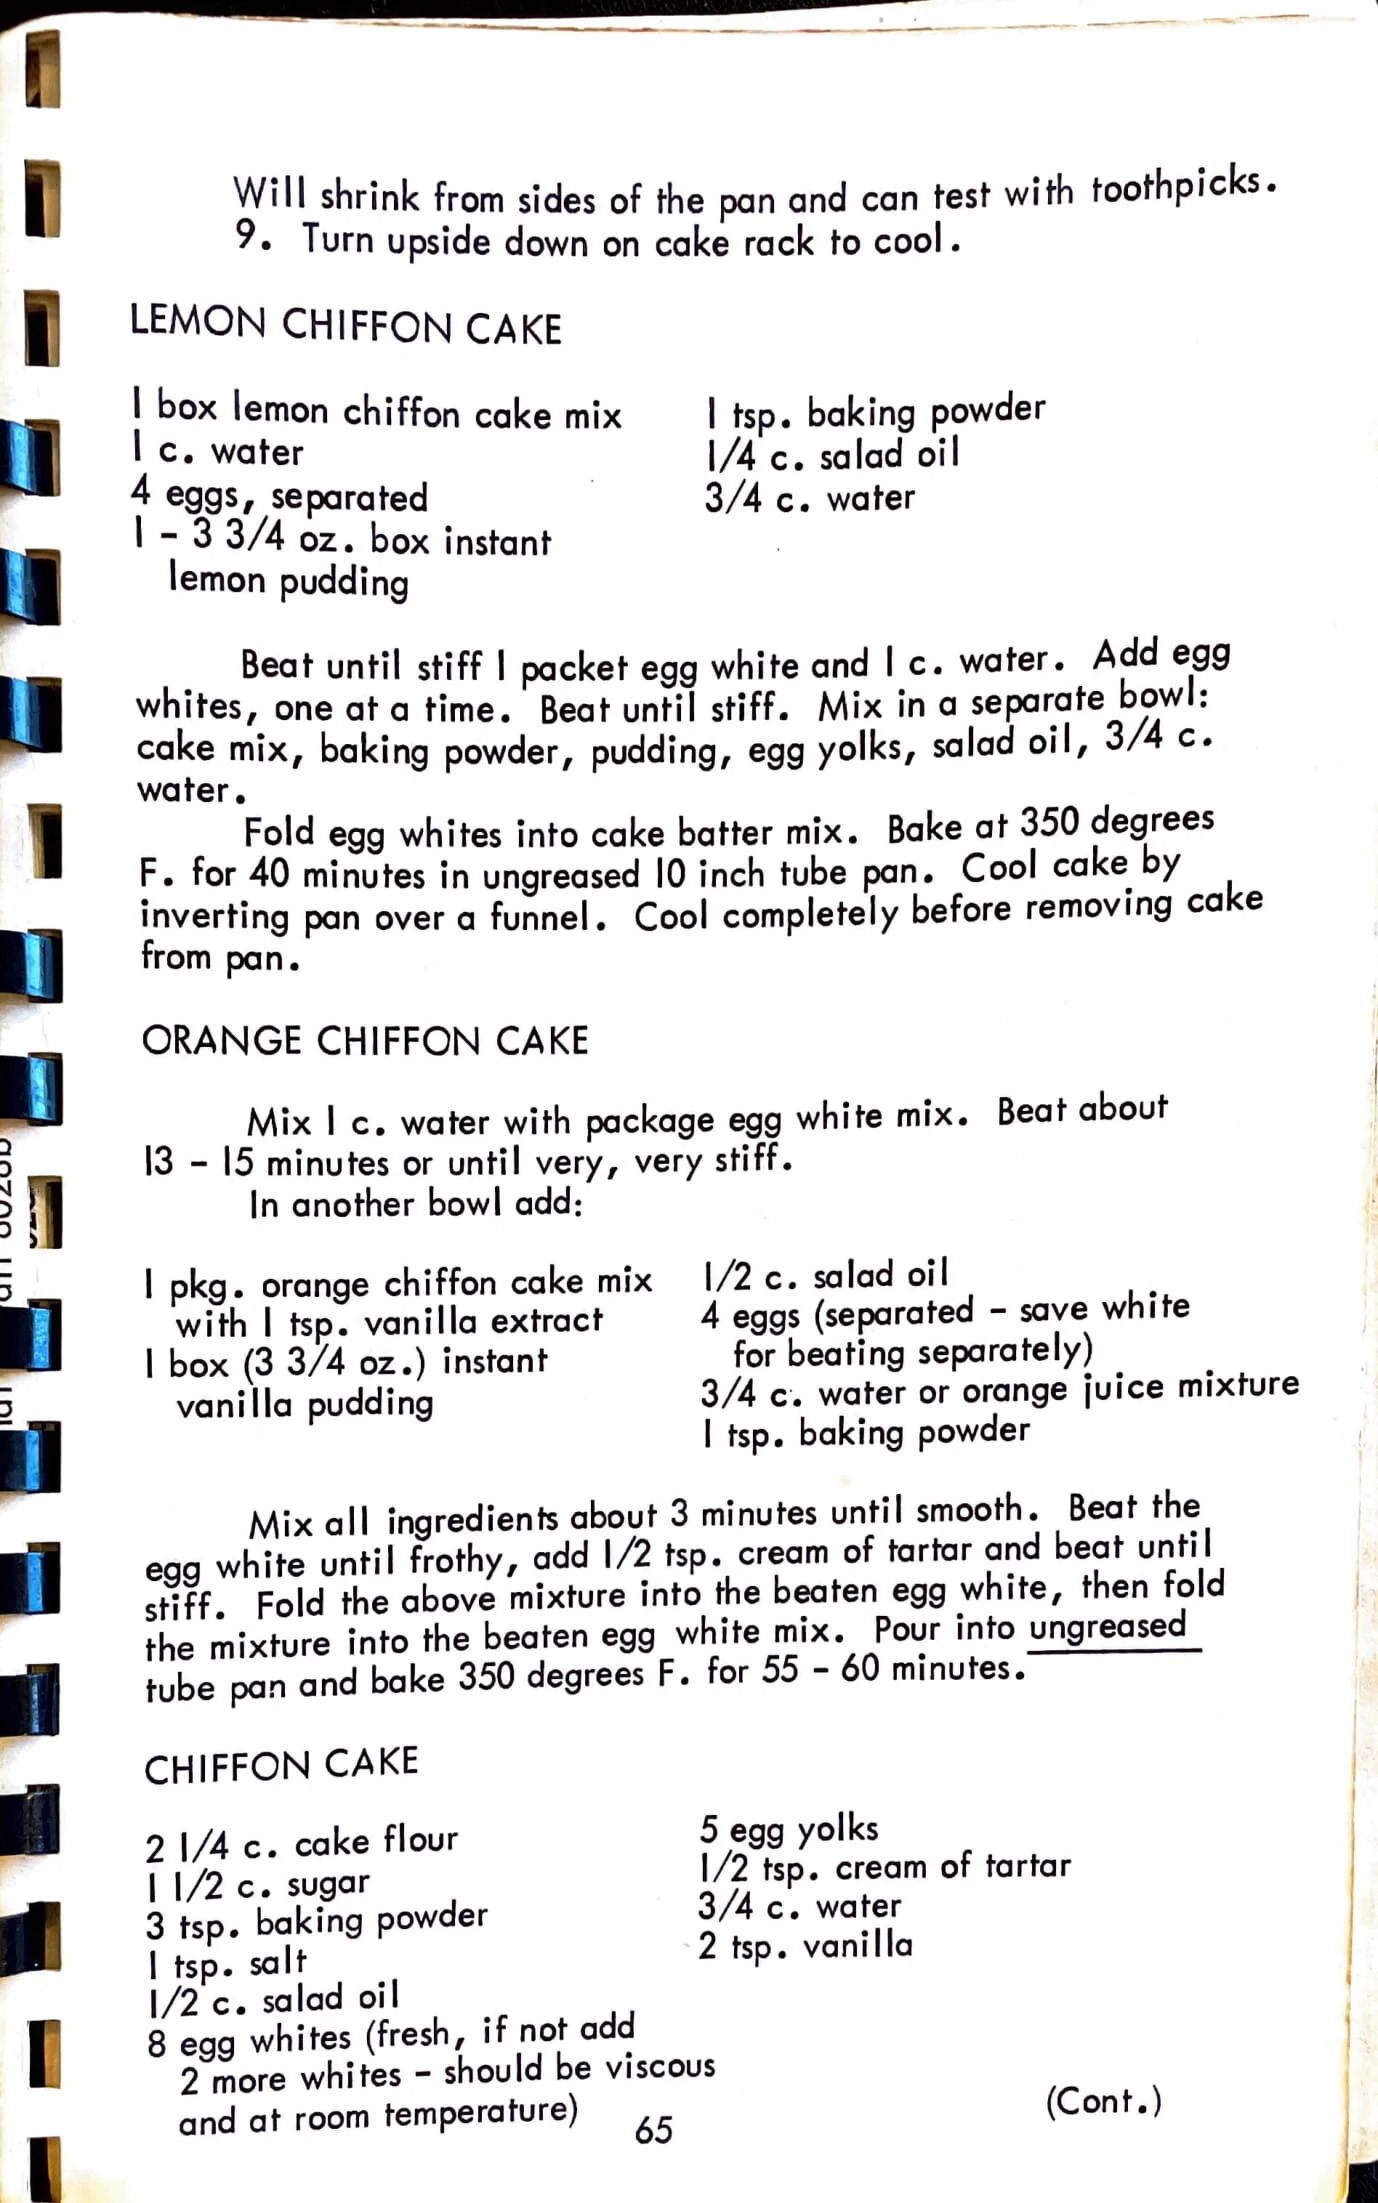 Will shrink from sides of the pan and can test with toothpicks.
9. Turn upside down on cake rack to cool.
LEMON CHIFFON CAKE
1 box lemon chiffon cake mix
1 c. water
4 eggs, separated
1 - 3 3/4 oz. box instant
lemon pudding
1 tsp. baking powder
1/4 c. salad oil
3/4 c. water
Beat until stiff 1 packet egg white and 1 c. water. Add egg
whites, one at a time. Beat until stiff. Mix in a separate bowl:
cake mix, baking powder, pudding, egg yolks, salad oil, 3/4 c.
water.
Fold egg whites into cake batter mix. Bake at 350 degrees
F. for 40 minutes in ungreased 10 inch tube pan. Cool cake by
inverting pan over a funnel. Cool completely before removing cake
from pan.
ORANGE CHIFFON CAKE
Mix 1 c. water with package egg white mix. Beat about
13 - 15 minutes or until very, very stiff.
In another bowl add:
1 pkg. orange chiffon cake mix
with 1 tsp. vanilla extract
1 box (3 3/4 oz.) instant
vanilla pudding
1/2 c. salad oil
4 eggs (separated - save white
for beating separately)
3/4 c. water or orange juice mixture
1 tsp. baking powder
Mix all ingredients about 3 minutes until smooth. Beat the
egg white until frothy, add 1/2 tsp. cream of tartar and beat until
stiff. Fold the above mixture into the beaten egg white, then fold
the mixture into the beaten egg white mix. Pour into ungreased
tube pan and bake 350 degrees F. for 55 - 60 minutes.
CHIFFON CAKE
2 1/4 c. cake flour
1 1/2 c. sugar
3 tsp. baking powder
1 tsp. salt
1/2 c. salad oil
8 egg whites (fresh, if not add
2 more whites - should be viscous
and at room temperature)
5 egg yolks
1/2 tsp. cream of tartar
3/4 c. water
2 tsp. vanilla
(Cont.)
65